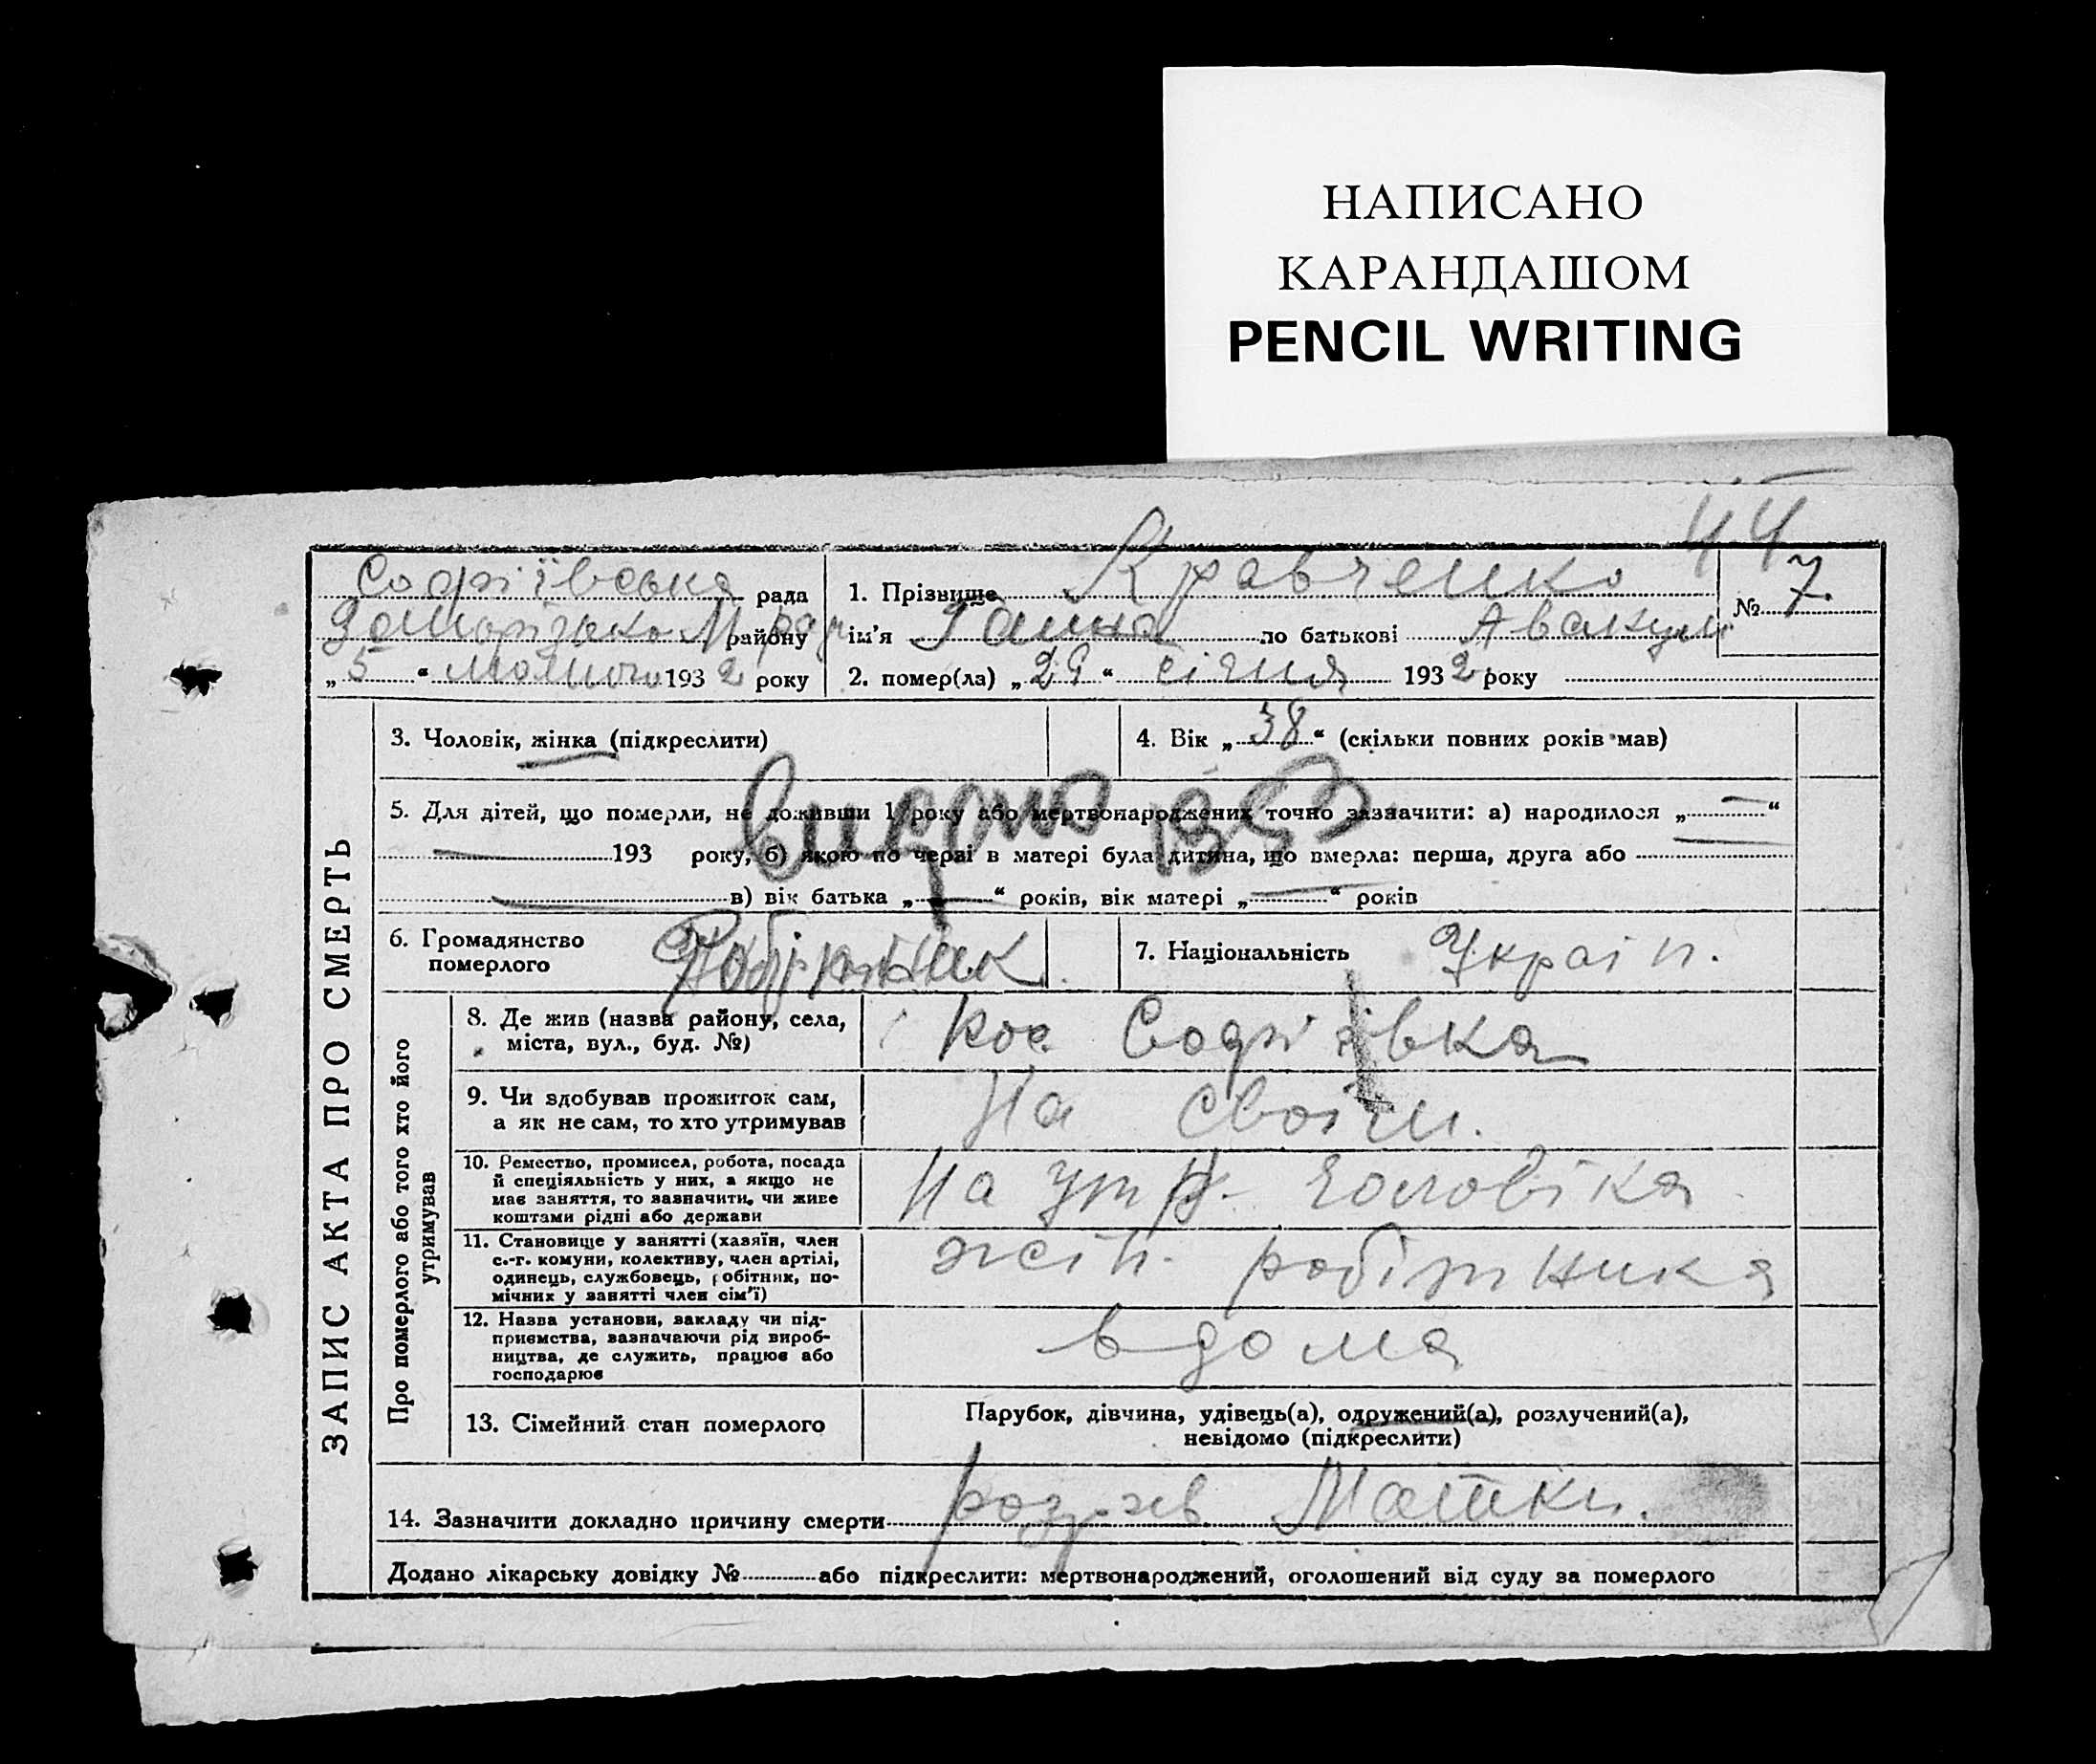 НАПИСАНО
КАРАНДАШОМ
PENCIL WRITING
44
Софіївська рада
району
„ 5 “ лютого 1932 року
1. Прізвище Кравченко
№ 7
ім'я Ганна по батькові Авакум
2. помер(ла) „ 29 “ січня 1932 року
ЗАПИС АКТА ПРО СМЕРТЬ
3. Чоловік, жінка (підкреслити)
4. Вік „ 38 “ (скільки повних років мав)
видано
5. Для дітей, що померли, не доживши 1 року або мертвонароджених точно зазначити: а) народилося „ — “
193 року, б) якою по черзі в матері була дитина, що вмерла: перша, друга або
в) вік батька „ — “ років, вік матері „ — “ років
6. Громадянство
померлого
Робітник
7. Національність Україн.
Про померлого або того хто його
утримував
8. Де жив (назва району, села,
міста, вул., буд. №)
Софіївка
9. Чи здобував прожиток сам,
а як не сам, то хто утримував
На своїм.
10. Ремество, промисел, робота, посада
й спеціяльність у них, а якщо не
має заняття, то зазначити, чи живе
коштами рідні або держави
На утр. чоловіка
11. Становище у занятті (хазяїн, член
с.-г. комуни, колективу, член артілі,
одинець, службовець, робітник, по-
мічних у занятті член сім'ї)
жін. робітника
12. Назва установи, закладу чи під-
приємства, зазначаючи рід вироб-
ництва, де служить, працює або
господарює
в дома
13. Сімейний стан померлого
Парубок, дівчина, удівець(а), одружений(а), розлучений(а),
невідомо (підкреслити)
14. Зазначити докладно причину смерти Матки.
Додано лікарську довідку № або підкреслити: мертвонароджений, оголошений від суду за померлого